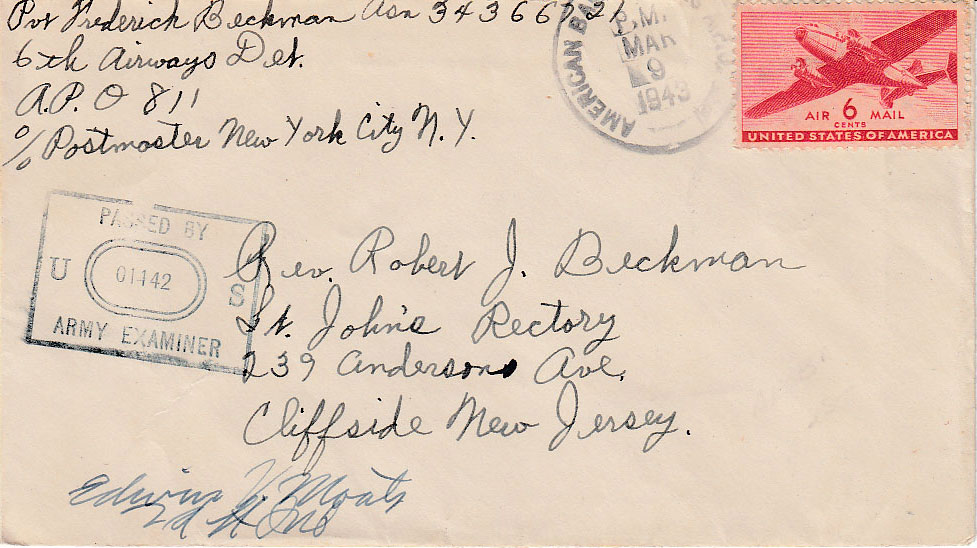 Pvt Frederick Beckman Asn 34366721
6th Airways Det.
A.P.O 811
c/o Postmaster New York City N.Y.
AMERICAN BA
P.M.
MAR
9
1943
AIR 6 MAIL
CENTS
UNITED STATES OF AMERICA
PASSED BY
U 01142 S
ARMY EXAMINER
Rev. Robert J. Beckman
St. John's Rectory
239 Anderson Ave.
Cliffside New Jersey.
Edwin V. Moats